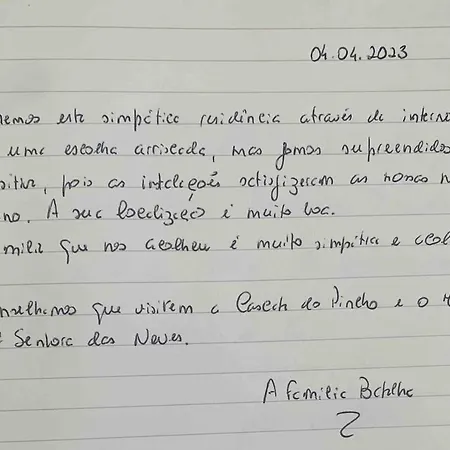 04.04.2023
hemos esta simpática residência através de intern
uma escolha arriscada, mas fomos surpreendidos
sitiva, pois as instalações satisfizeram as nossas n
no. A sua localização é muito boa.
mília que nos acolheu é muito simpática e acol
nselhamos que visitem a Cascata do Pinho e o
Senhora das Neves.
A família Batalha